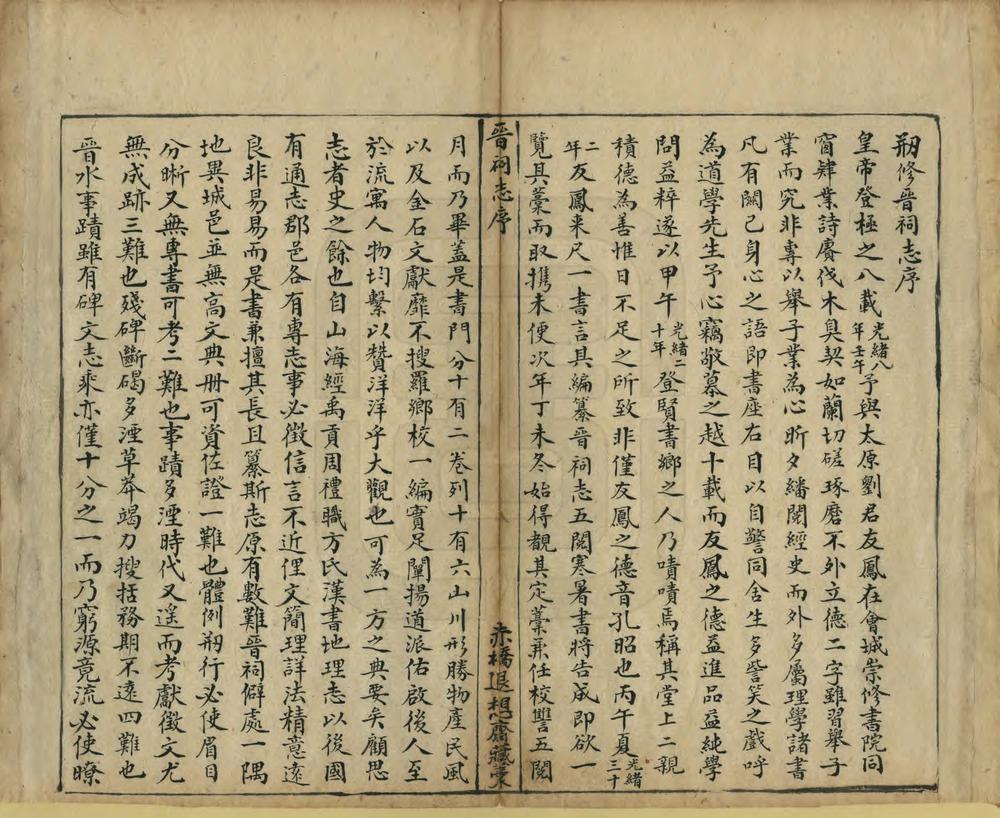 刱修晉祠志序
皇帝登極之八載光緒八年壬午予與太原劉君友鳳在會城崇修書院同
窗肄業詩賡伐木臭契如蘭切磋琢磨不外立德二字雖習舉子
業而究非專以舉子業為心昕夕繙閱經史而外多屬理學諸書
凡有關己身心之語即書座右目以自警同舍生多訾笑之戲呼
為道學先生予心竊敬慕之越十載而友鳳之德益進品益純學
問益粹遂以甲午光緒二十年登賢書鄉之人乃嘖嘖焉稱其堂上二親
積德為善惟日不足之所致非僅友鳳之德音孔昭也丙午夏光緒三十
二年友鳳来尺一書言其編纂晉祠志五閱寒暑書將告成即欲一
覽其藁而取攜未便次年丁未冬始得覩其定藁兼任校讐五閱
晉祠志序
赤橋退想齋藏藁
月而乃畢蓋是書門分十有二卷列十有六山川形勝物產民風
以及金石文獻靡不搜羅鄉校一編實足闡揚道派佑啟後人至
於流寓人物均繫以贊洋洋乎大觀也可為一方之典要矣顧思
志者史之餘也自山海經禹貢周禮職方氏漢書地理志以後國
有通志郡邑各有專志事必徵信言不近俚文簡理詳法精意遠
良非易易而是書兼擅其長且纂斯志原有數難晉祠僻處一隅
地異城邑並無高文典冊可資佐證一難也體例刱行必使眉目
分晰又無專書可考二難也事蹟多湮時代又遥而考獻徵文尤
無成跡三難也殘碑斷碣多湮草莽竭力搜括務期不遠四難也
晉水事蹟雖有碑文志乘亦僅十分之一而乃窮源竟流必使瞭